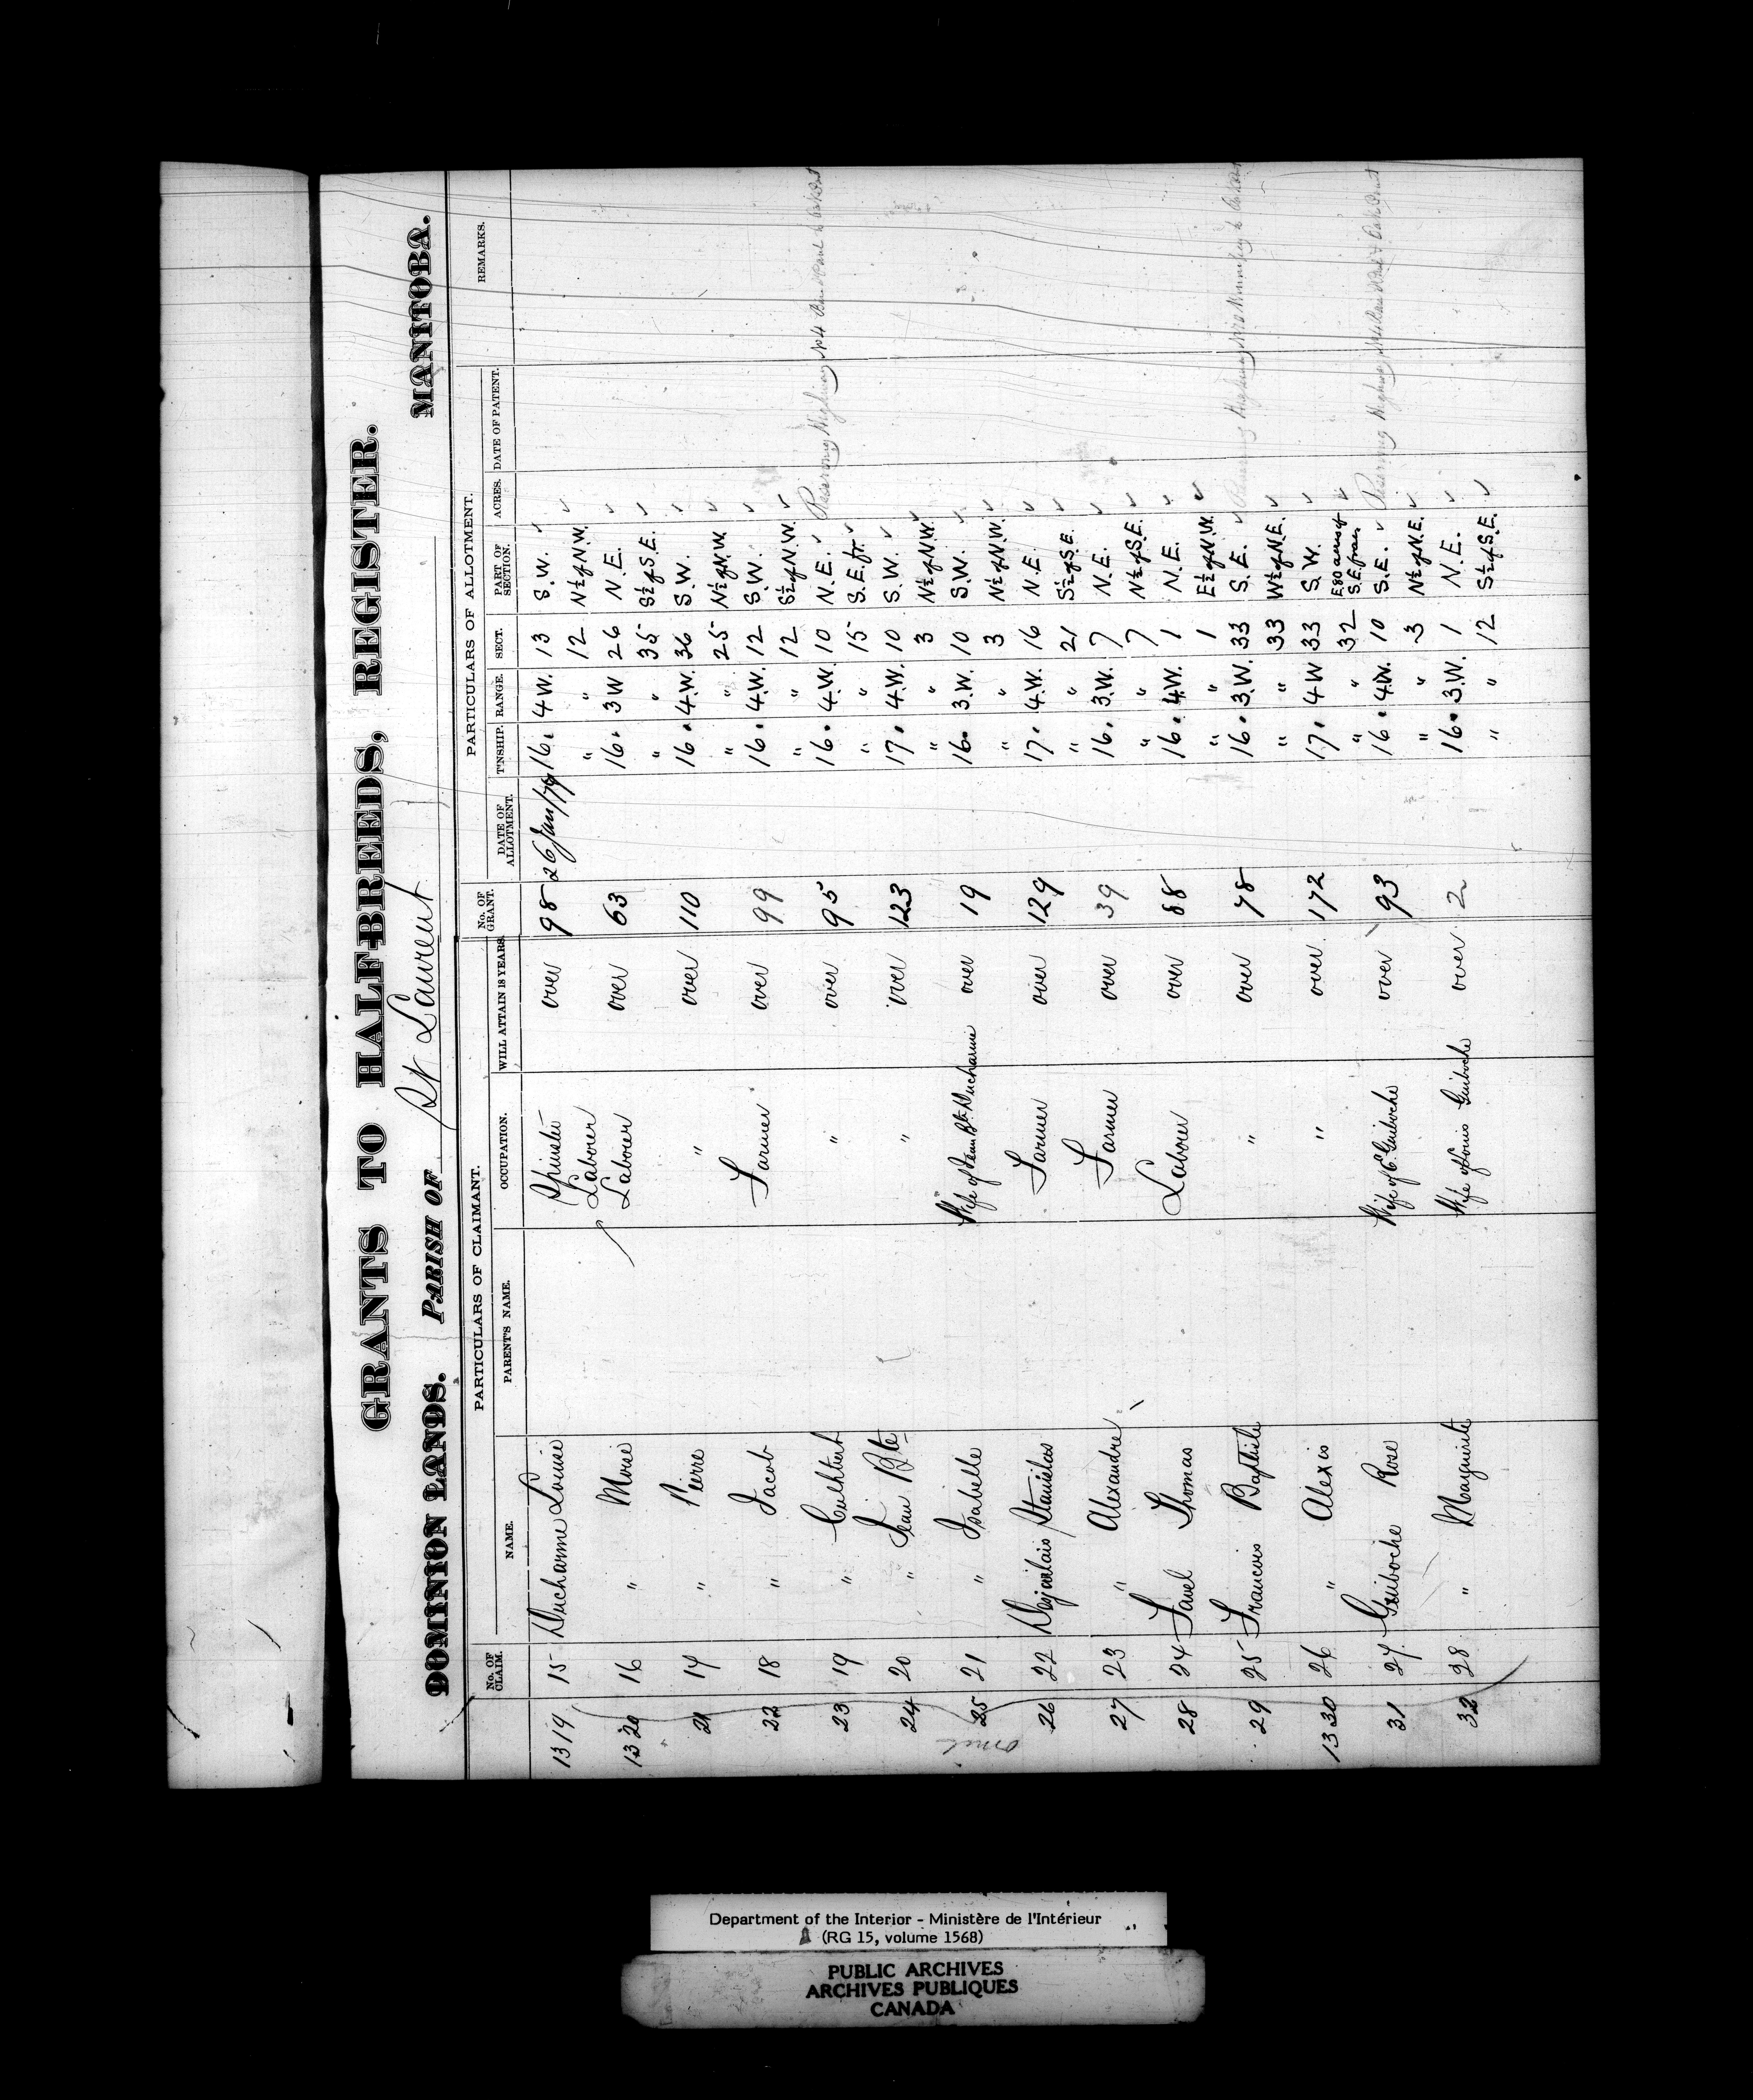 GRANTS TO HALF-BREEDS, REGISTER.
DOMINION LANDS. PARISH OF St Laurent MANITOBA.
PARTICULARS OF CLAIMANT. PARTICULARS OF ALLOTMENT.
No. OF CLAIM. NAME. PARENT'S NAME. OCCUPATION. WILL ATTAIN 18 YEARS. No. OF GRANT. DATE OF ALLOTMENT. T'NSHIP. RANGE. SECT. PART OF SECTION. ACRES. DATE OF PATENT. REMARKS.
1319 15 Ducharme Louise Spinster over 98 26 Jan/79 16. 4 W. 13 S.W. ✓
Labourer " 12 N½ of N.W. ✓
1320 16 " Moise Labourer over 63 16. 3 W 26 N.E. ✓
" " 35 S½ of S.E. ✓
21 17 " Pierre " over 110 16. 4.W. 36 S.W. ✓
" " 25 N½ of N.W. ✓
22 18 " Jacob Farmer over 99 16. 4.W. 12 S.W. ✓
" " 12 S½ of N.W. ✓
23 19 " Cuthbert " over 95 16. 4.W. 10 N.E. ✓ Reserving Highway No 4
" " 15 S.E. fr. ✓
24 20 " Jean Bte " over 123 17. 4.W. 10 S.W. ✓
" " 3 N½ of N.W. ✓
25 21 " Isabelle Wife of Jean Bte Ducharme over 19 16. 3.W. 10 S.W. ✓
" " 3 N½ of N.W. ✓
26 22 Desjarlais Stanislas Farmer over 129 17. 4.W. 16 N.E. ✓
" " 21 S½ of S.E. ✓
27 23 " Alexandre Farmer over 39 16. 3.W. 7 N.E. ✓
" " 7 N½ of S.E. ✓
28 24 Favel Thomas Labourer over 88 16. 4.W. 1 N.E. ✓
" " 1 E½ of N.W. ✓
29 25 Francois Baptiste " over 78 16. 3.W. 33 S.E. ✓ Reserving Highway
" " 33 W½ of N.E. ✓
1330 26 " Alexis " over 172 17. 4 W 33 S.W. ✓
" " 32 E 80 acres of S.E. frac. ✓
31 27 Guiboche Rose Wife of E. Guiboche over 93 16. 4.W. 10 S.E. ✓ Reserving Highway
" " 3 N½ of N.E. ✓
32 28 " Marguerite Wife of Louis Guiboche over 2 16. 3.W. 1 N.E. ✓
" " 12 S½ of S.E. ✓
Department of the Interior - Ministère de l'Intérieur
(RG 15, volume 1568)
PUBLIC ARCHIVES
ARCHIVES PUBLIQUES
CANADA